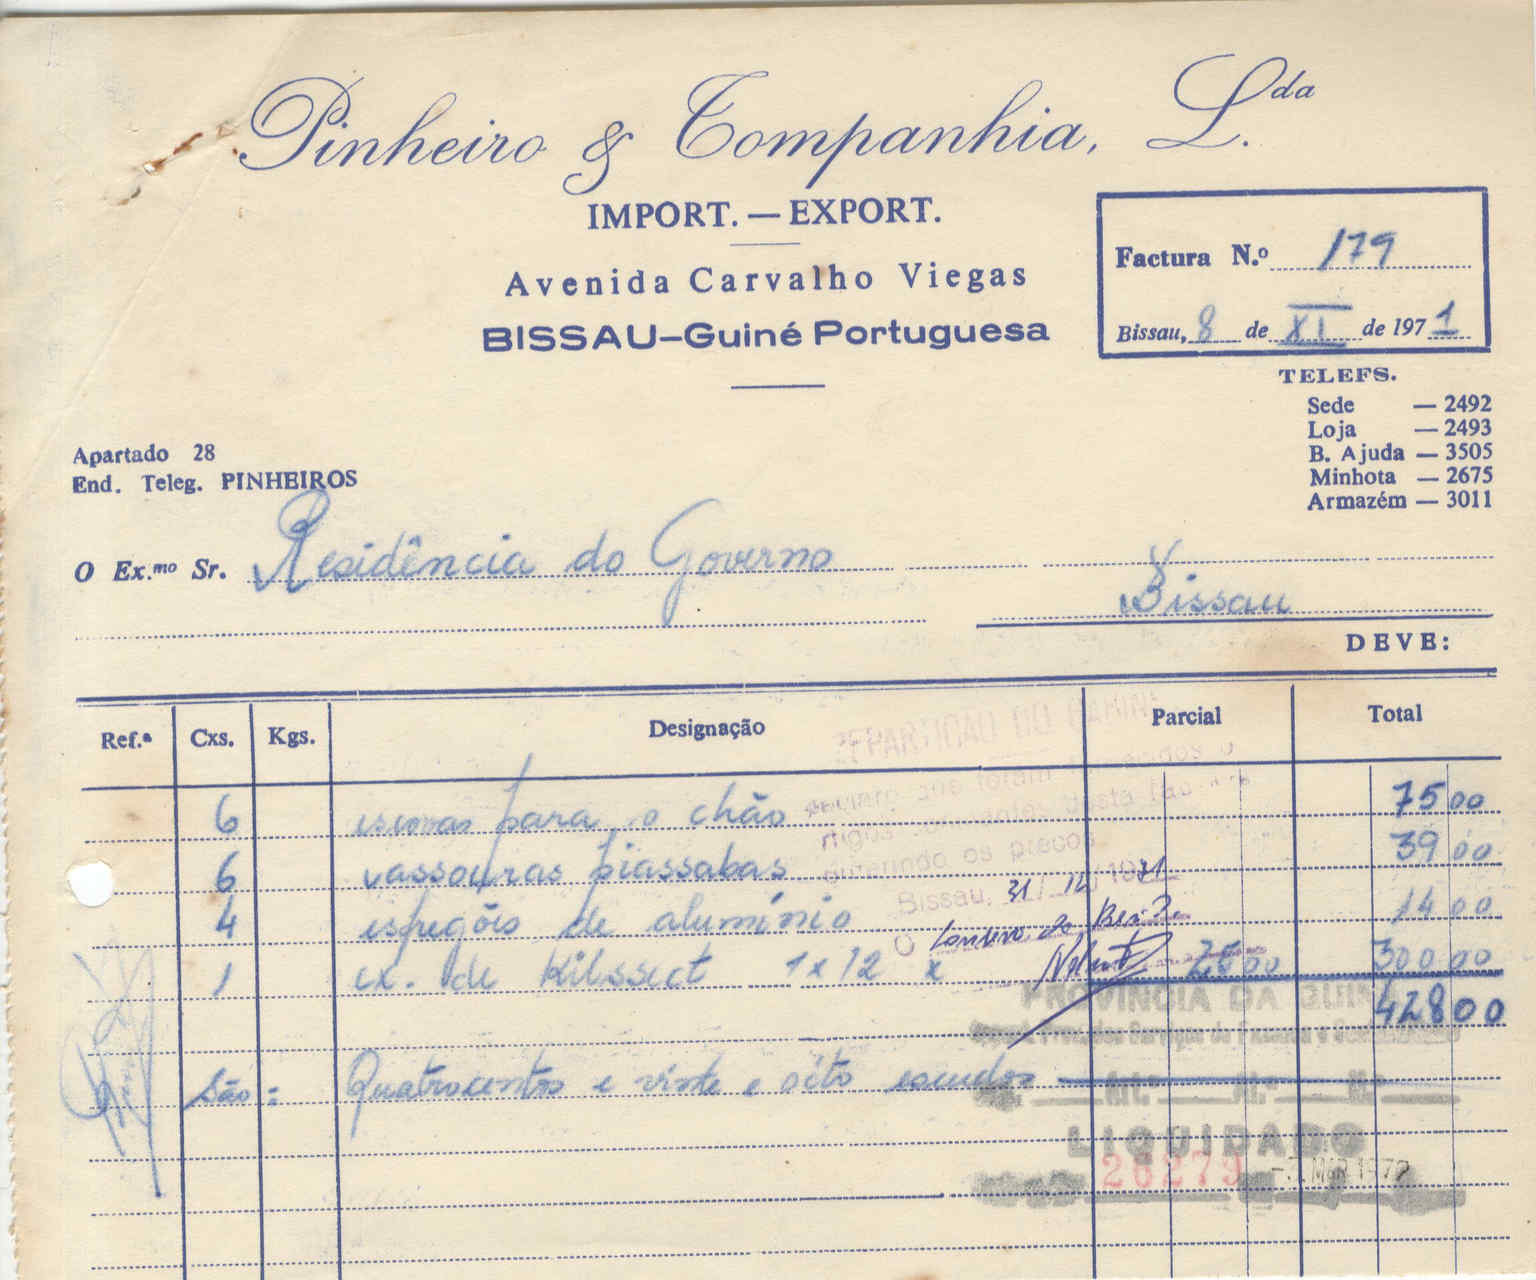 Pinheiro & Companhia, L.da
IMPORT. — EXPORT.
Avenida Carvalho Viegas
BISSAU—Guiné Portuguesa
Factura N.º 179
Bissau, 8 de XI de 1971
TELEFS.
Sede — 2492
Loja — 2493
B. Ajuda — 3505
Minhota — 2675
Armazém — 3011
Apartado 28
End. Teleg. PINHEIROS
O Ex.mo Sr. Residência do Governo
Bissau
DEVE:
Ref.ª Cxs. Kgs. Designação Parcial Total
6 para o chão 75 00
6 vassouras piassabas 39 00
4 esfregões de alumínio 14 00
1 cx. de Kilssect 1x12 x 25 00 300 00
428 00
São: Quatrocentos e vinte e oito escudos
os preços
Bissau, 31/12/1971
O
PROVINCIA DA GUINÉ
LIQUIDADO
26279 MAR 1972